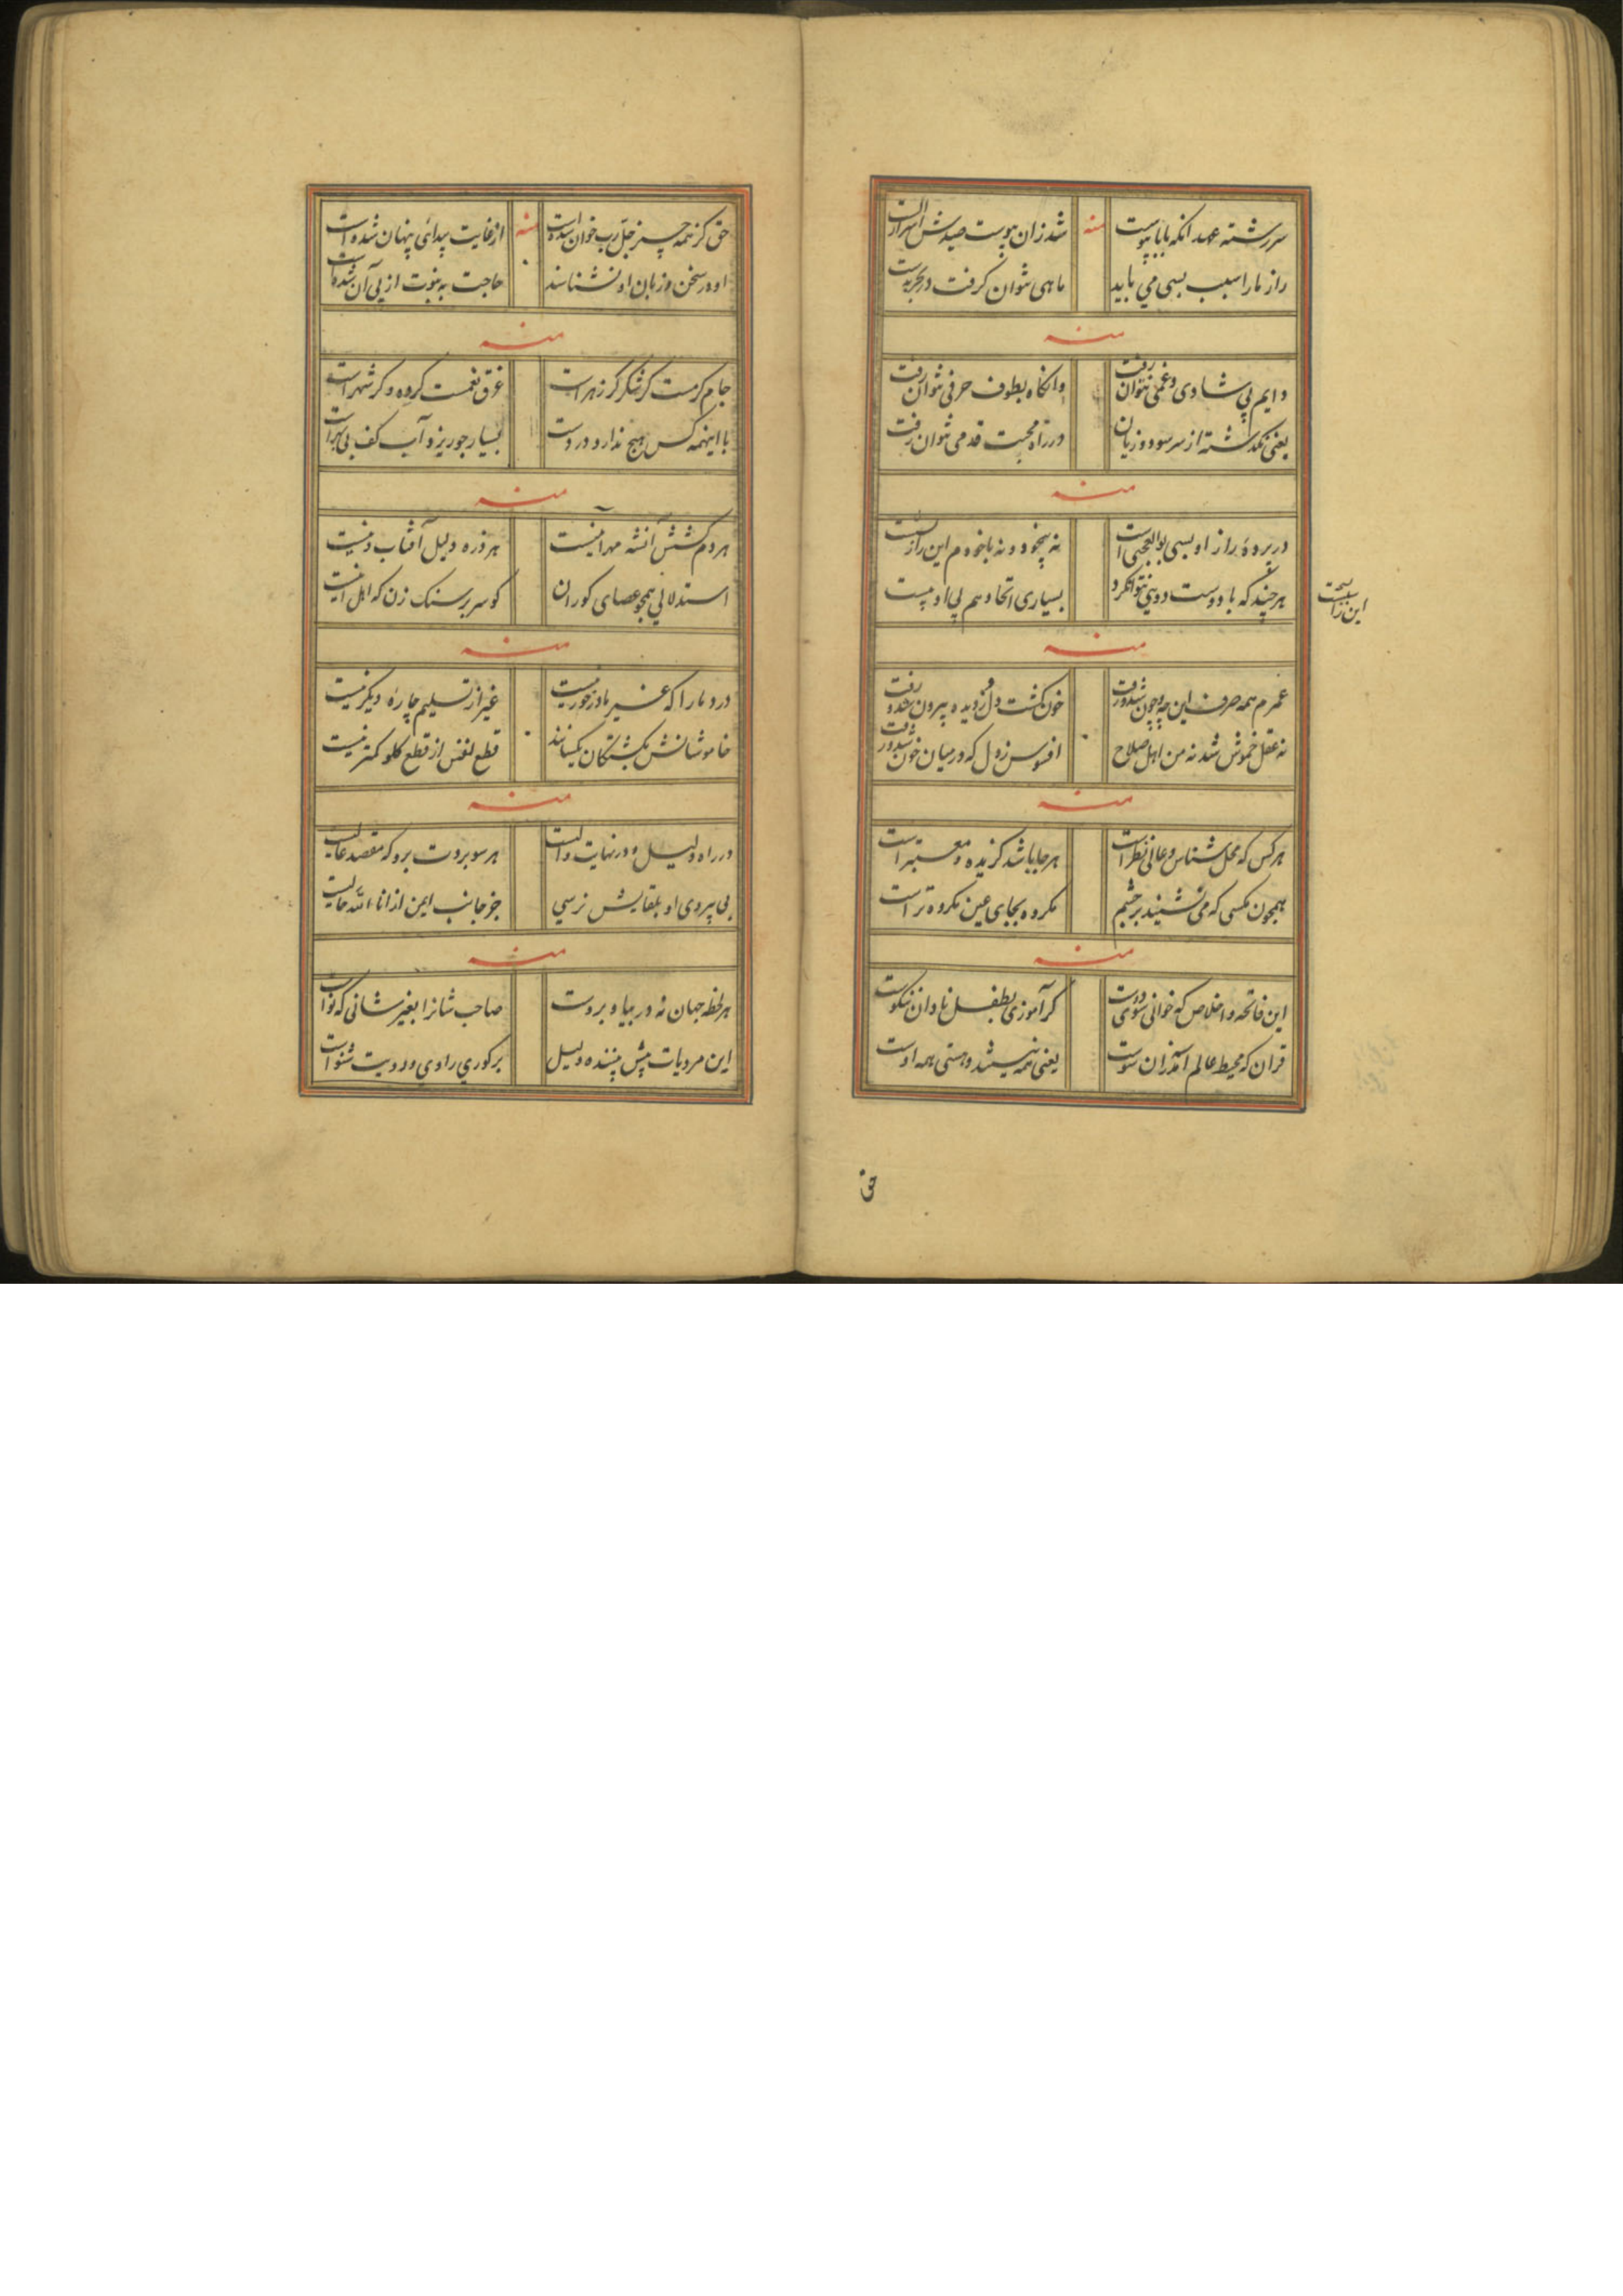 سررشته عهد انکه بابا پیوست
منه
شد زان پوست صیدش اسرار الست
راز مارا سبب بسی می باید
ماهی نتوان کرفت در بحر بدست
منه
دایم پی شادی و غمی نتوان رفت
وانکاه بطوف حرفی نتوان رفت
یعنی نکذشته از سر سود و زیان
در راه محبت قدمی نتوان رفت
منه
در پردهٔ راز او بسی بوالعجبی است
نه بیخود و نه باخودم این راز
هرچند که با دوست دویی نتوانکرد
بسیاری اتحاد هم بی ادبیست
این را
منه
عمرم همه صرف این چه و چون شد و رفت
خون کشت دل و ز دیده بیرون شد و رفت
نه عقل خموش شد نه من اهل صلاح
افسوس ز دل که در میان خون شد و رفت
منه
هرکس که محل شناس و عالی نظر است
هرجا باشد کزیده و معتبر است
همچون مکسی که می نشیند بر چشم
مکروه بجای عین مکروه تر است
منه
این فاتحه و اخلاص که خوانی سوی دوست
کر آموزی بطفل نادان نیکوست
قران که محیط عالم آمد زان سوست
یعنی همه نیستند و هستی همه اوست
حق
حق کز همه چیز جل رب خوان شده است
منه
از غایت پیدائی پنهان شده است
او در سخن و زبان او نشناسند
حاجت به نبوت از پی آن شده است
منه
جام کرمست کر شکر کر زهر است
غرق نعمت کر ده و کر شهر است
با اینهمه کس هیچ ندارد در دست
بسیار جو ریزد آب کف بی بهر است
منه
هر دم کشش آنشه مهر آیین نیست
هر ذره دلیل آفتاب دین نیست
استدلالی همچو عصای کوران
کو سر بر سنک زن که اهل این نیست
منه
درد مارا که غیر مادر خور نیست
غیر از تسلیم چارهٔ دیکر نیست
خاموشانش بکشتکان یکسانند
قطع نفس از قطع کلو کمتر نیست
منه
در راه دلیل و در نهایت والیت
هر سو بردت برو که مقصد عالیت
بی پیروی او بلقایش نرسی
جز جانب ایمن از انا الله خالیت
منه
هر لحظه جهان نه در بیا و برو است
صاحب شانرا بغیر شانی که نو است
این مرویات پیش بیننده دلیل
بر کوری راوی و رویت شنو است